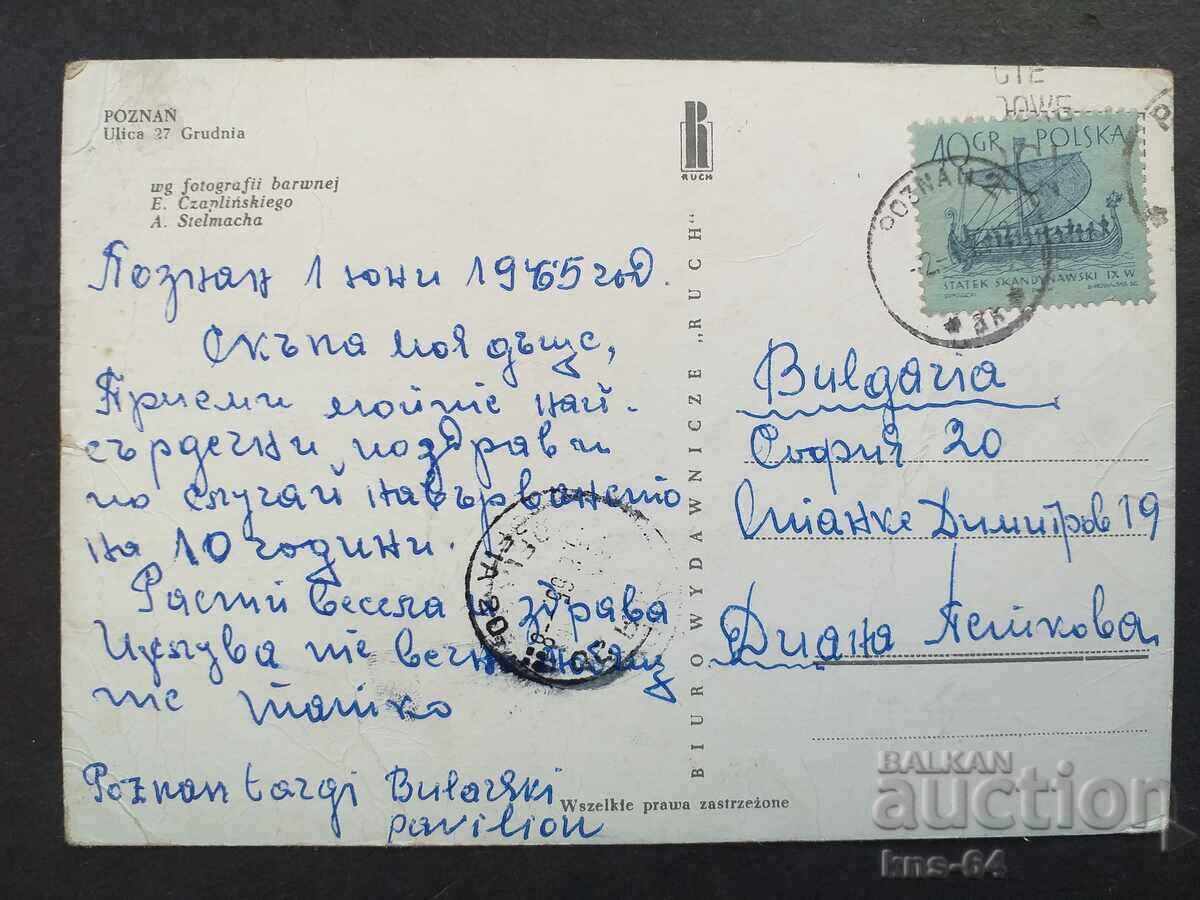 POZNAŃ
Ulica 27 Grudnia
wg fotografii barwnej
E. Czaplińskiego
A. Stelmacha
Познан 1 юни 1965 год.
Скъпа моя дъще,
Приеми мойте най-
сърдечни поздрави
по случай навърването
на 10 години.
Расти весела и здрава
Целува те
те татко
Poznan targi Bularski
pavilion
RUCH
BIURO WYDAWNICZE „RUCH"
Wszelkie prawa zastrzeżone
10 GR POLSKA
STATEK SKANDYNAWSKI IX W
POZNAŃ
Bulgaria
София 20
Станке Димитров 19
Диана Петкова
SOFIA
BALKAN
auction
kns-64